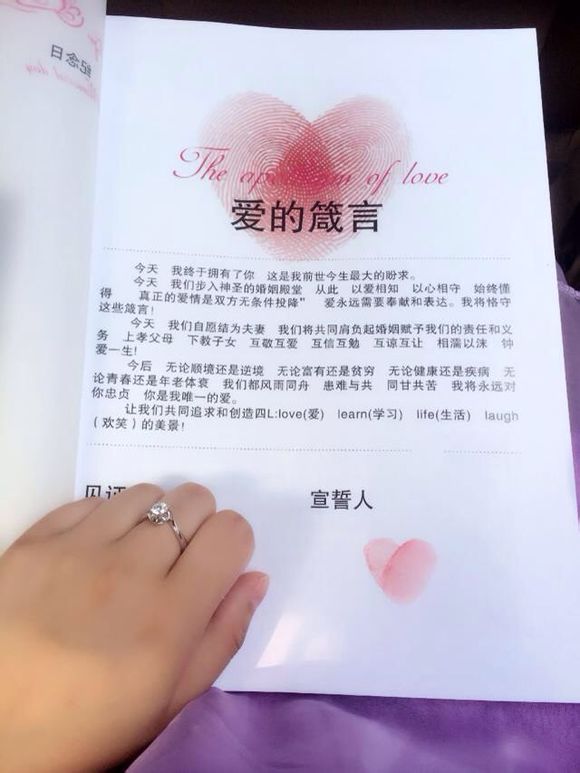 纪念日
The of love
爱的箴言
今天 我终于拥有了你 这是我前世今生最大的盼求。
今天 我们步入神圣的婚姻殿堂 从此 以爱相知 以心相守 始终懂
得 真正的爱情是双方无条件投降” 爱永远需要奉献和表达。我将恪守
这些箴言!
今天 我们自愿结为夫妻 我们将共同肩负起婚姻赋予我们的责任和义
务 上孝父母 下教子女 互敬互爱 互信互勉 互谅互让 相濡以沫 钟
爱一生!
今后 无论顺境还是逆境 无论富有还是贫穷 无论健康还是疾病 无
论青春还是年老体衰 我们都风雨同舟 患难与共 同甘共苦 我将永远对
你忠贞 你是我唯一的爱。
让我们共同追求和创造四L:love(爱) learn(学习) life(生活) laugh
(欢笑)的美景!
宣誓人